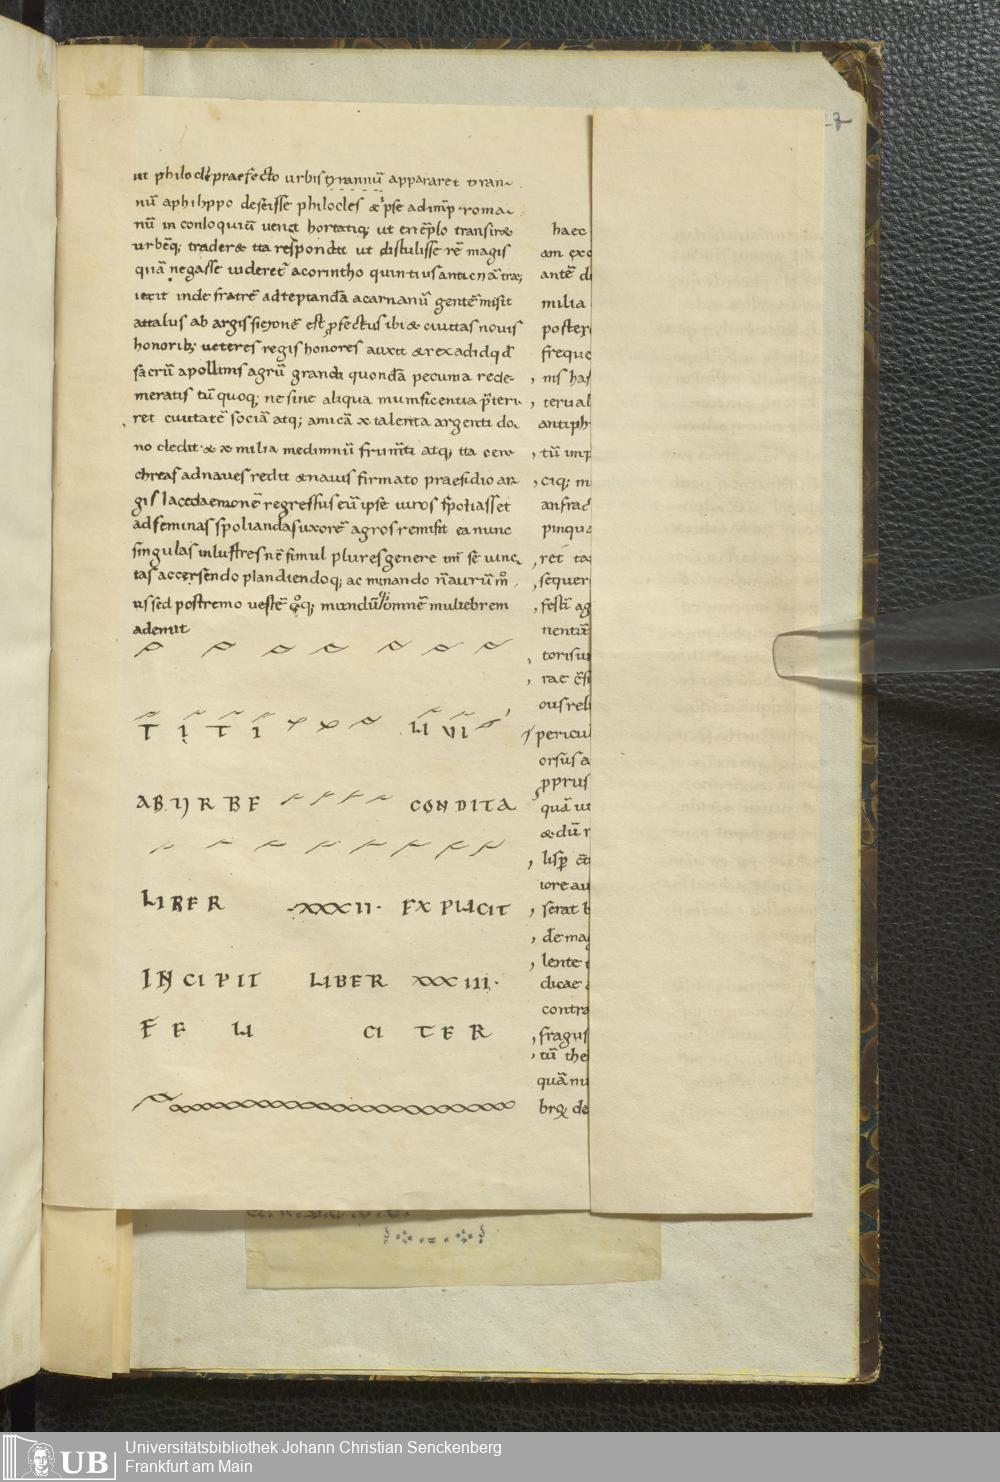 27
ut philoclē praefecto urbis tyrannū appararet tyran
nū aphilippo descisse philocles & ipse ad imp roma
nū in conloquiū venit hortatiq; ut
urbēq; tradere ita respondit ut distulisse rē magis
quā negasse videret acorintho quintius anticyrā tra
iecit inde fratrē ad teptandā acarnanū gentē misit
attalus ab argis sicyonē est pfectus ibi & civitas novis
honorib; veteres regis honores auxit & rex ad id qd
sacrū apollinis agrū grandi quondā pecunia rede
meratis tū quoq; ne sine aliqua munificentia pteri
ret civitatē sociā atq; amicā x talenta argenti do
no dedit & x milia medimnū frumti atq; ita cen
chreas ad naves redit & navis firmato praesidio ar
gis lacedaemonē regressus cū ipse viros spoliasset
ad feminas spoliandas uxorē argos remisit ea nunc
singulas inlustres nc simul plures genere int se iunc
tas accersendo blandiendoq; ac minando n aurū m
us sed postremo vestē qq; mundūq omnē muliebrem
ademit
TITI LIVI
AB URBE CONDITA
LIBER XXXII· EXPLICIT
INCIPIT LIBER XXXIII·
FELICITER
haec
am exc
antē d
milia
poster
freque
nis has
terval
antiph
tū imp
ciq; m
anfrac
pinqua
ret ta
sequer
festī ag
nentiū
toris
rae
ous reli
pericul
orsus a
pprus
quā ut
& dū
lisp
iore au
serat b
de ma
lente
dicae
contra
fragus
tū the
quā nu
de
UB
Universitätsbibliothek Johann Christian Senckenberg
Frankfurt am Main